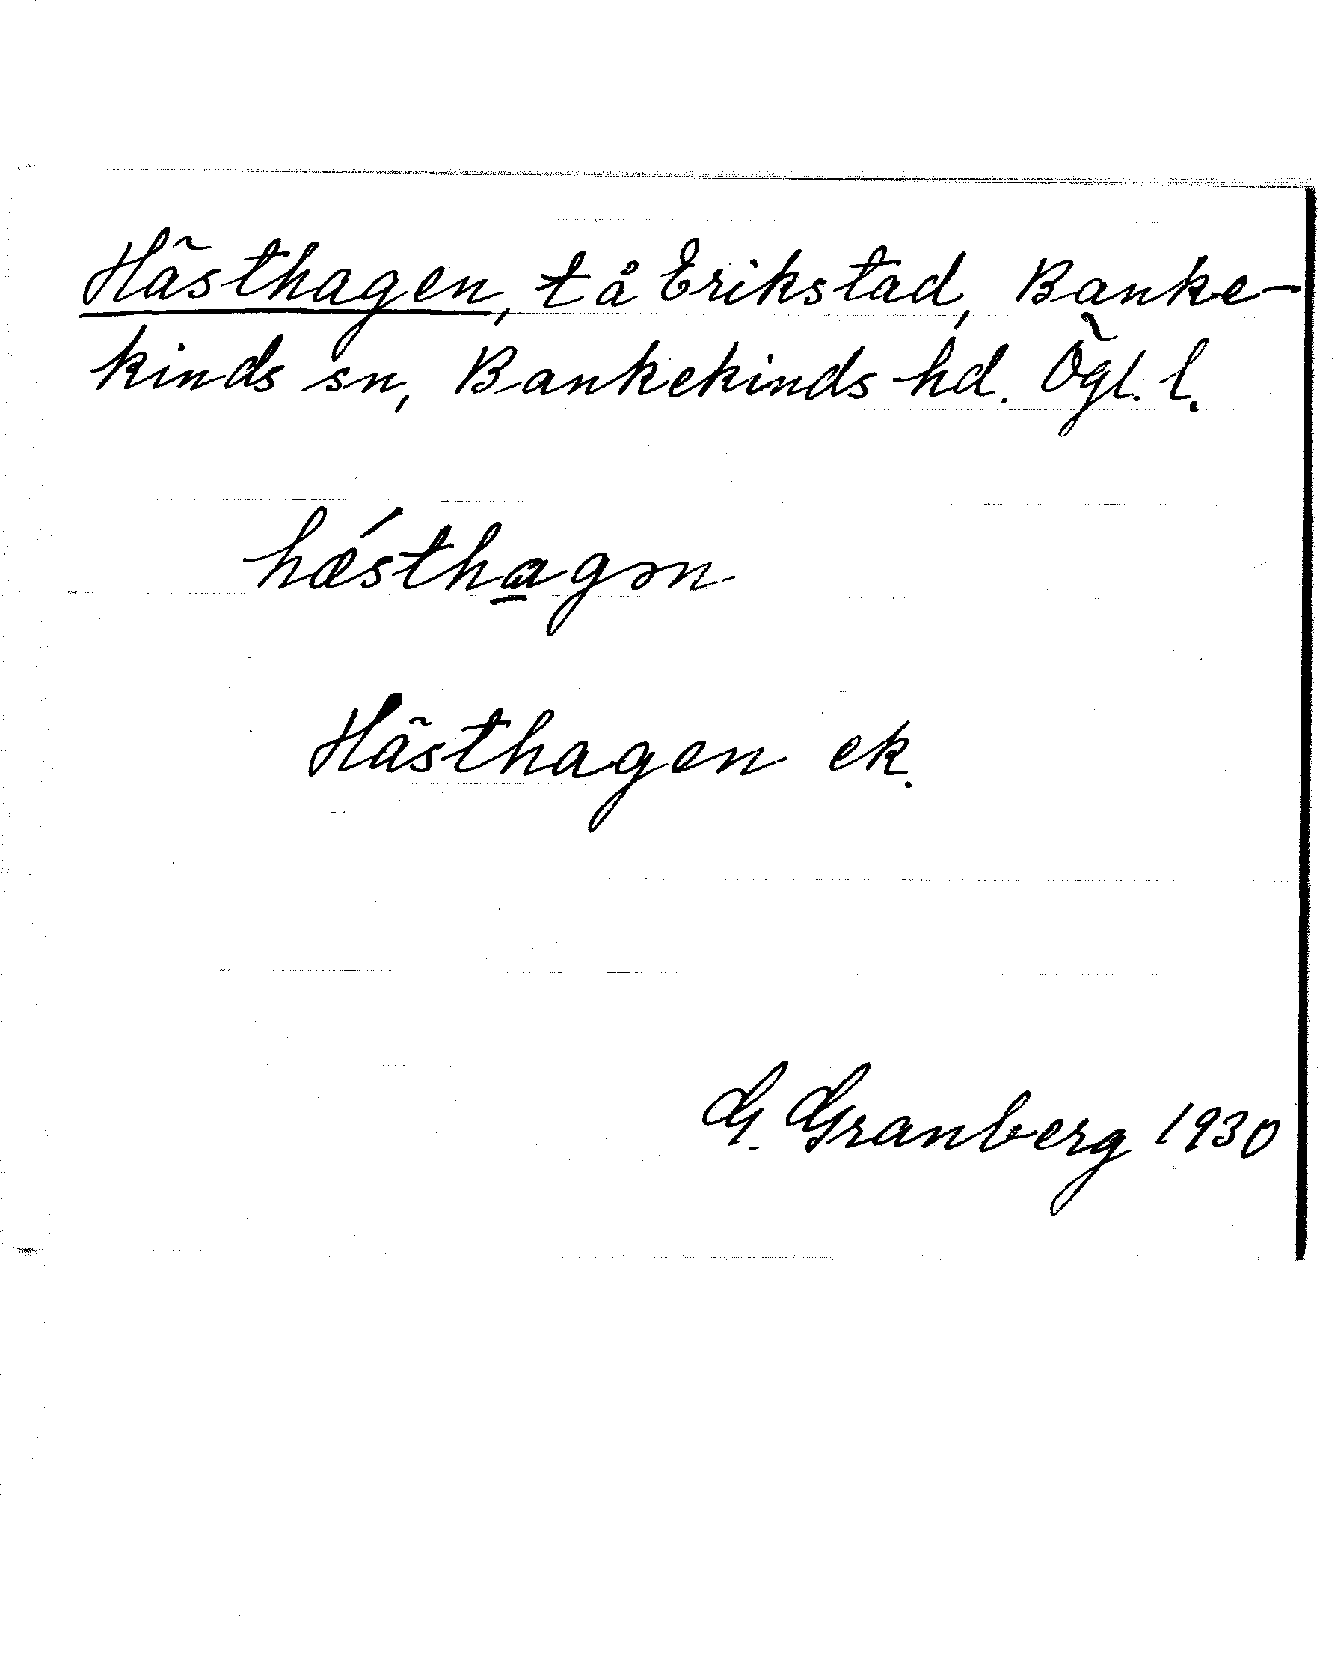 Hästhagen, t å Erikstad, Banke-
kinds sn, Bankekinds hd. Ögl. l.
hǽstha̲gən
Hästhagen ek.
G. Granberg 1930